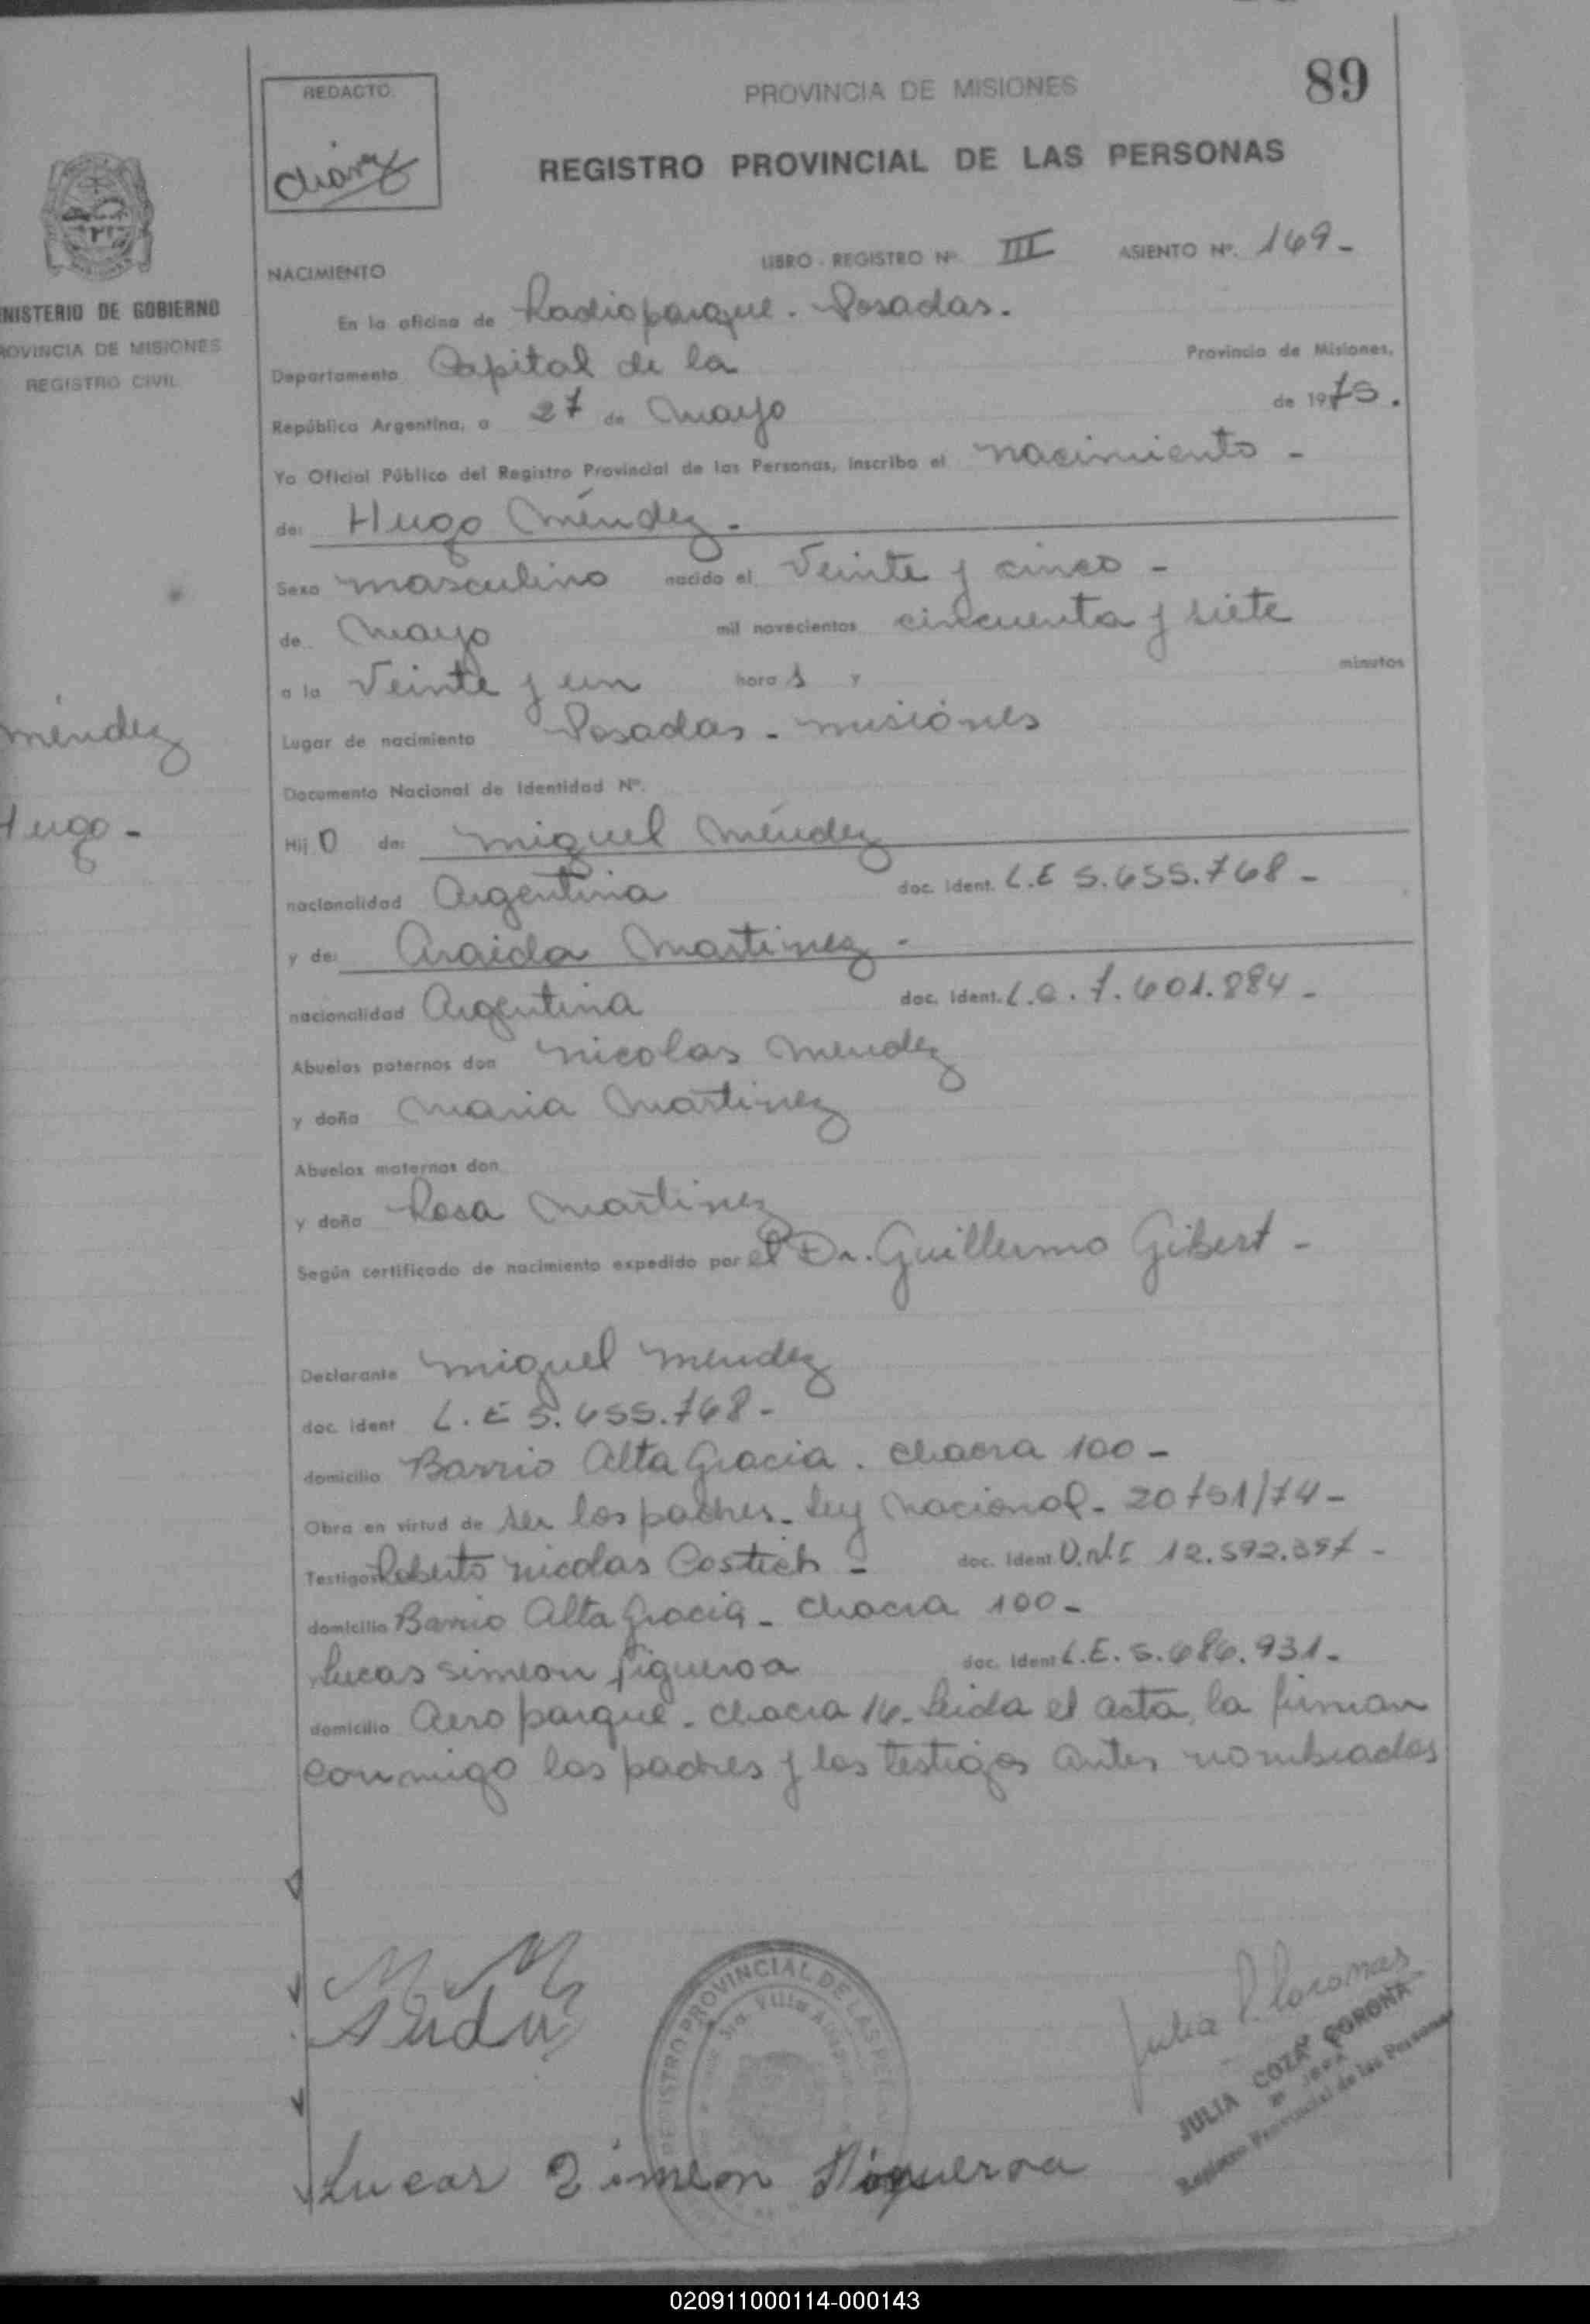 89
REDACTO
PROVINCIA DE MISIONES
REGISTRO PROVINCIAL DE LAS PERSONAS
NISTERIO DE GOBIERNO
ROVINCIA DE MISIONES
REGISTRO CIVIL
méndez
Hugo -
LIBRO - REGISTRO Nº. III ASIENTO Nº. 169 -
NACIMIENTO
En la oficina de Radioparque - Posadas.
Departamento Capital de la Provincia de Misiones,
República Argentina, a 27 de Mayo de 1975.
Yo Oficial Público del Registro Provincial de las Personas, inscribo el nacimiento -
de: Hugo Méndez -
Sexo masculino nacido el Veinte y cinco -
de Mayo mil novecientos cincuenta y siete
a la Veinte y un hora s y minutos
Lugar de nacimiento Posadas - misiónes
Documento Nacional de Identidad Nº.
Hij o de: Miguel Méndez
nacionalidad Argentina doc. ident. L.E 5.655.768 -
y de: Araida Martinez -
nacionalidad Argentina doc. ident. L.C. 7.601.884 -
Abuelos paternos don Nicolas Mendez
y doña Maria Martinez
Abuelos maternos don
y doña Rosa Martinez
Según certificado de nacimiento expedido por el Dr. Guillermo Gibert -
Declarante Miguel Mendez
doc. ident L.E 5.655.768 -
domicilio Barrio Alta Gracia. chacra 100 -
Obra en virtud de ser los padres - Ley Nacional - 20751/74 -
Testigos Roberto Nicolas Costich - doc. Ident D.N.I 12.592.397 -
domicilio Barrio Alta Gracia - Chacra 100 -
Lucas Simeon Figueroa doc. Ident L.E. 5.686.931 -
domicilio Aeroparque - chacra 16 - Leida el acta, la firman
conmigo los padres y los testigos antes nombrados
REGISTRO PROVINCIAL DE LAS PER
Julia
JULIA COZA CORONA
Registro Provincial de las Personas
Lucas Simeon Figueroa
020911000114-000143